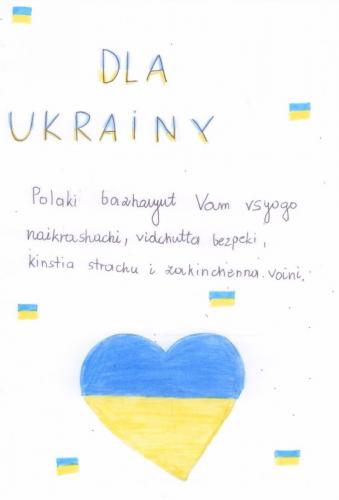 DLA
UKRAINY
Polaki bazhayut Vam vsyogo
naikrashachi, vidchutta bezpeki,
kinstia strachu i zakinchenna voini.